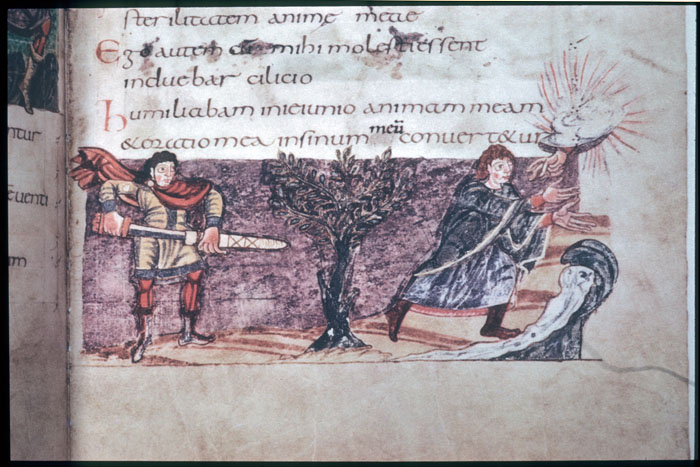 sterilitatem anime meae
Ego autem cum mihi molesti essent
induebar cilicio
humiliabam in ieiunio animam meam
& oratio mea in sinum meū convert&ur
ntur
eventi
am